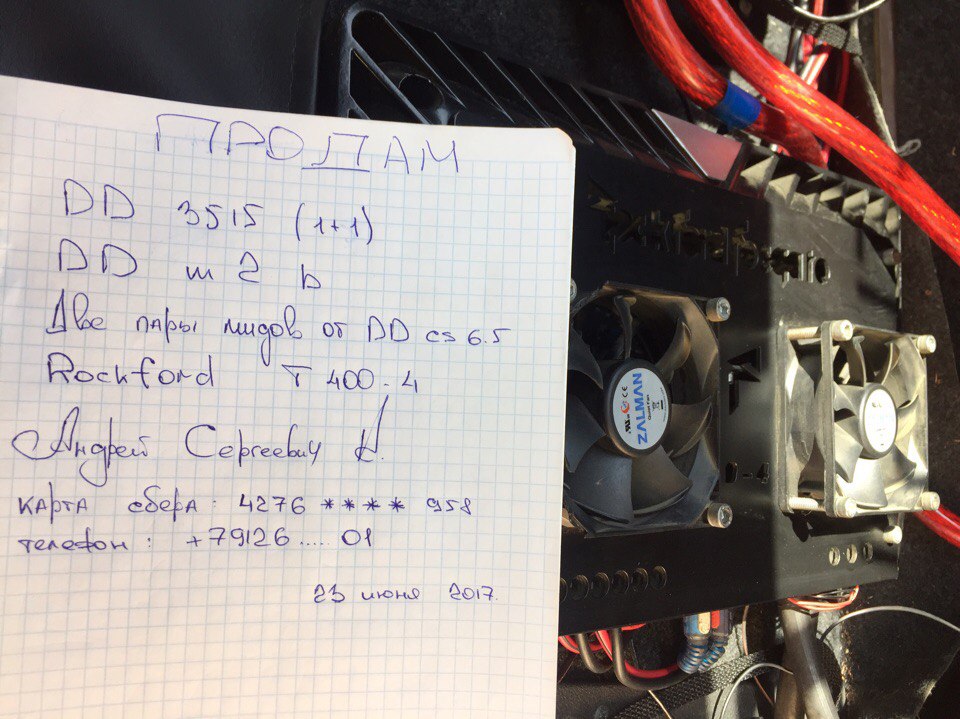 ПРОДАМ
DD 3515 (1+1)
DD m 2 b
Две пары мидов от DD cs 6.5
Rockford T 400-4
Андрей Сергеевич К.
карта сбера: 4276 **** 958
телефон: +79126.....01
23 июня 2017.
ZALMAN